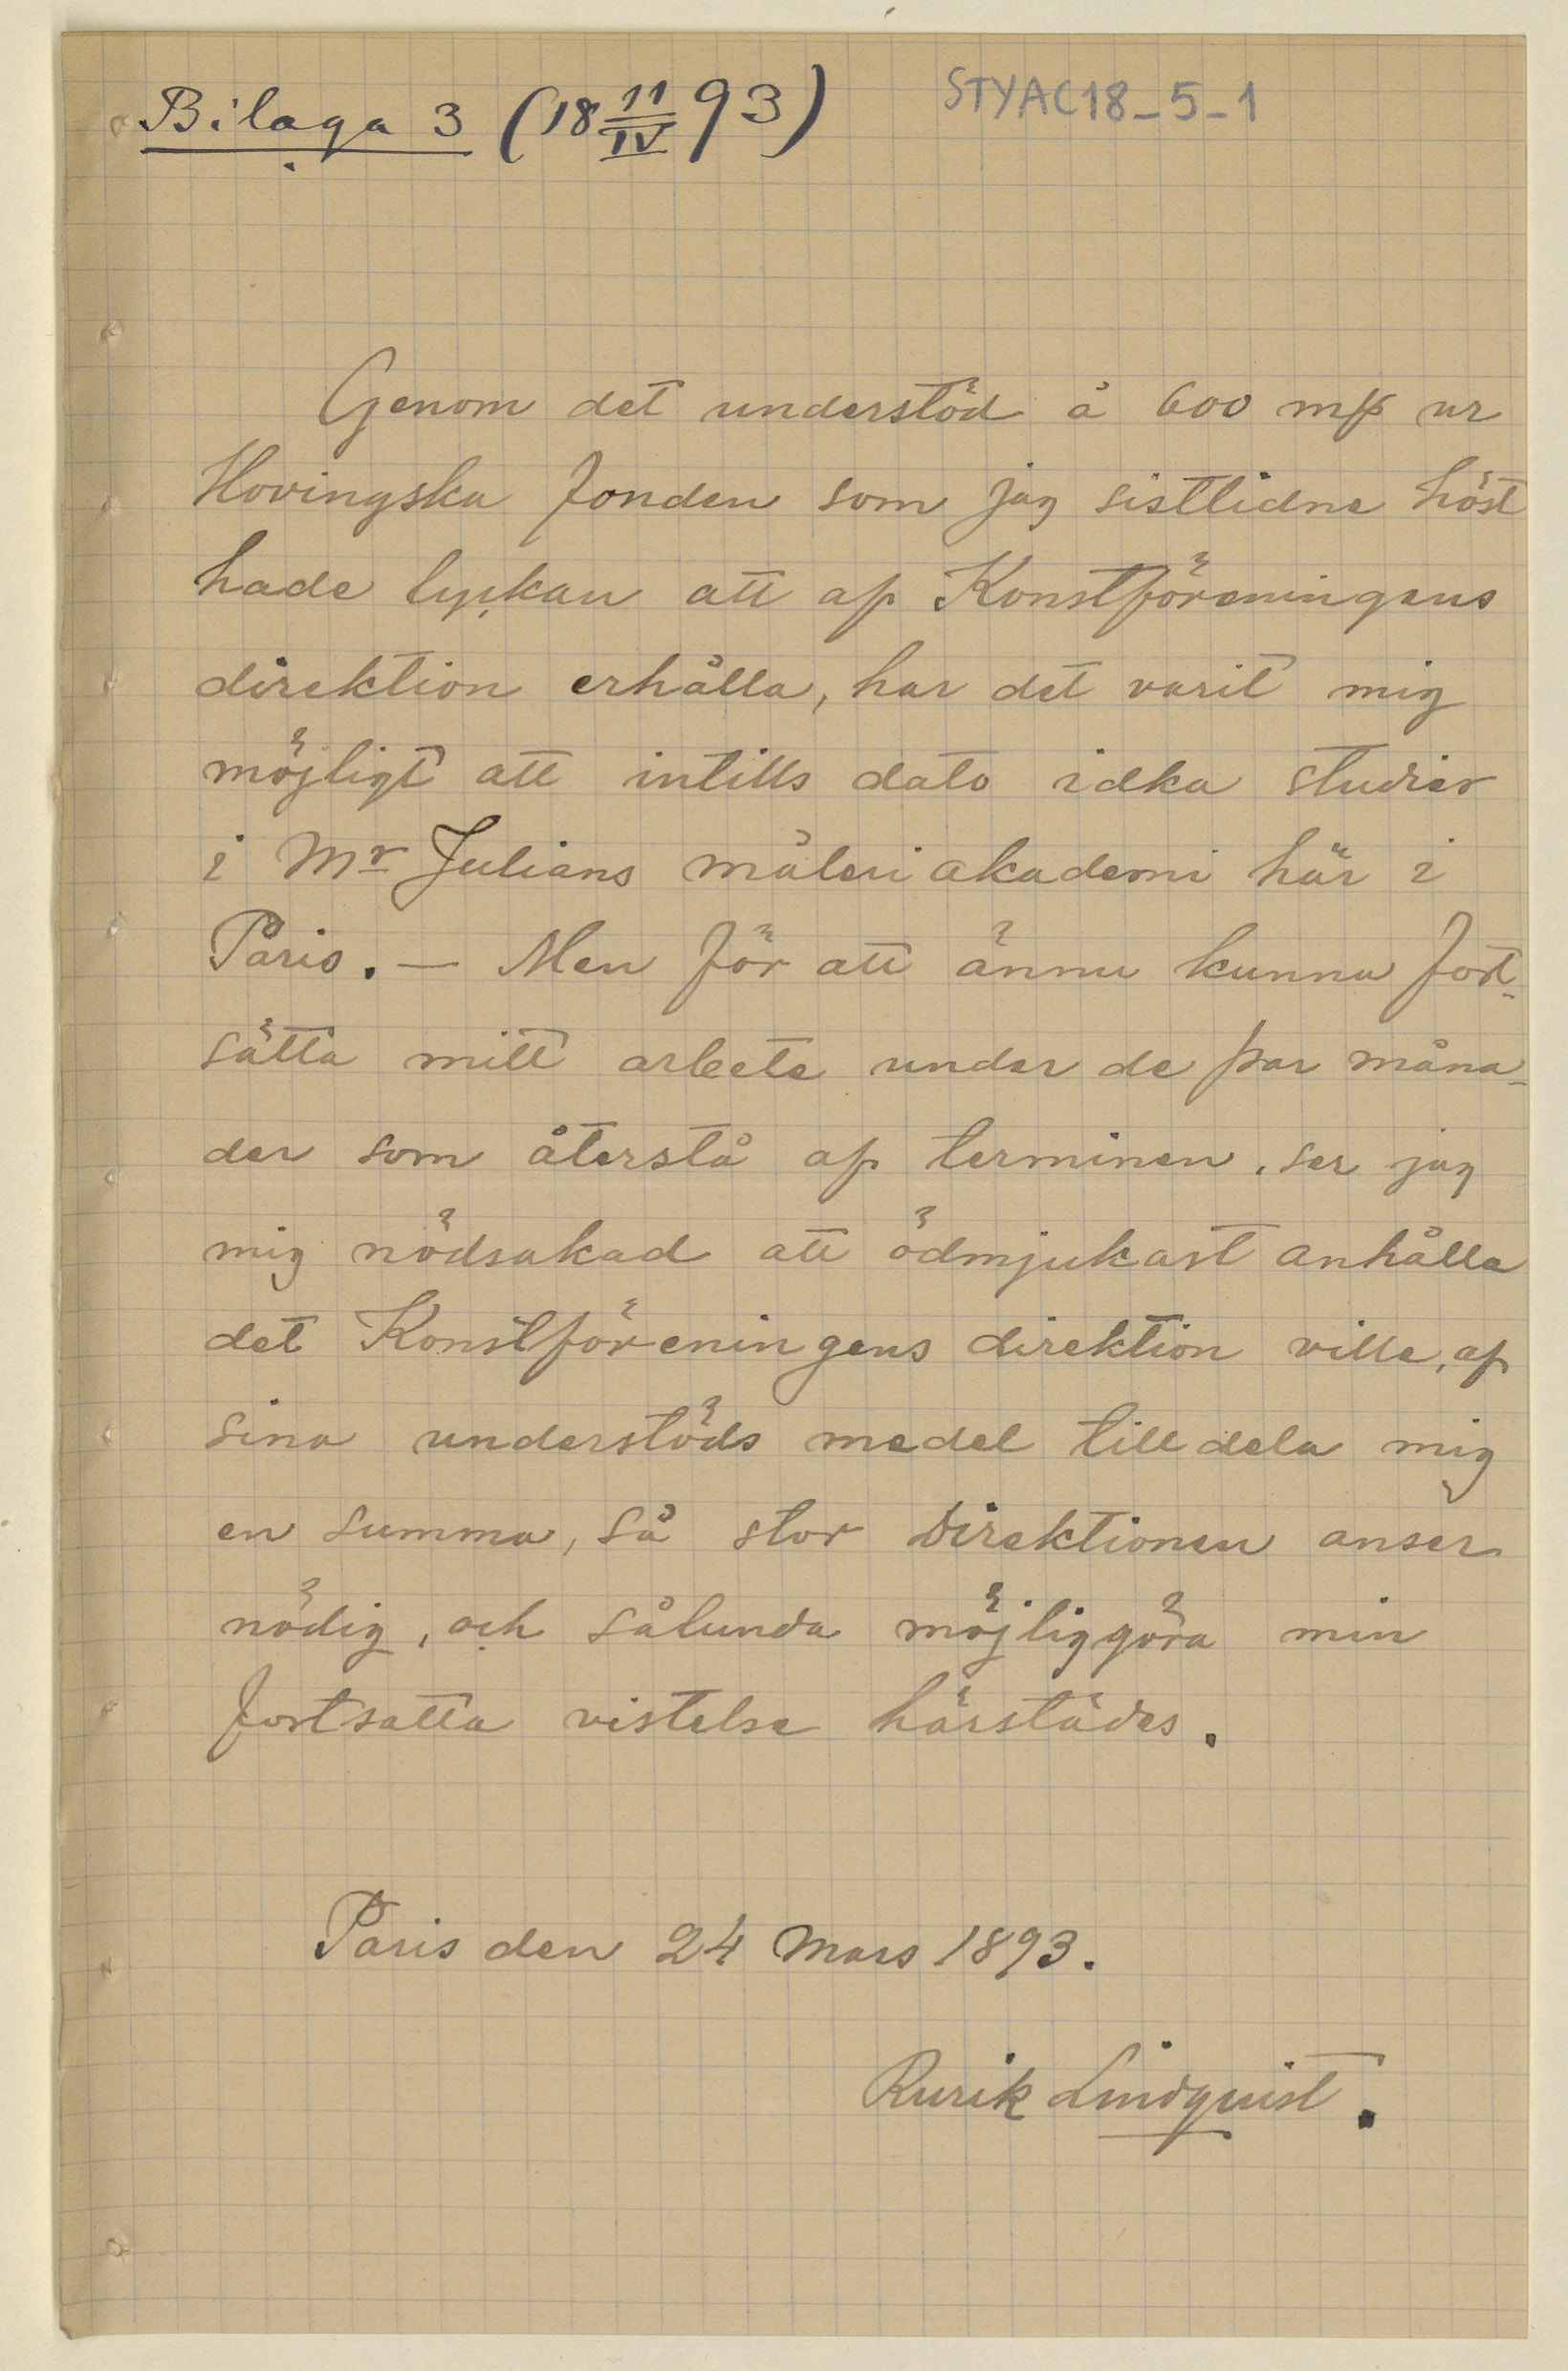 Bilaga 3 (18 11/IV 93)
STYAC18_5_1
Genom det understöd å 600 mk ur
Hovingska fonden som jag sistlidne höst
hade lyckan att af Konstföreningens
direktion erhålla, har det varit mig
möjligt att intills dato idka studier
i Mr Julians måleriakademi här i
Paris. — Men för att ännu kunna fort-
sätta mitt arbete under de par måna-
der som återstå af terminen, ser jag
mig nödsakad att ödmjukast anhålla
det Konstföreningens direktion ville, af
sina understöds medel tilldela mig
en summa, så stor Direktionen anser
nödig, och sålunda möjliggöra min
fortsatta vistelse härstädes.
Paris den 24 Mars 1893.
Rurik Lindquist.